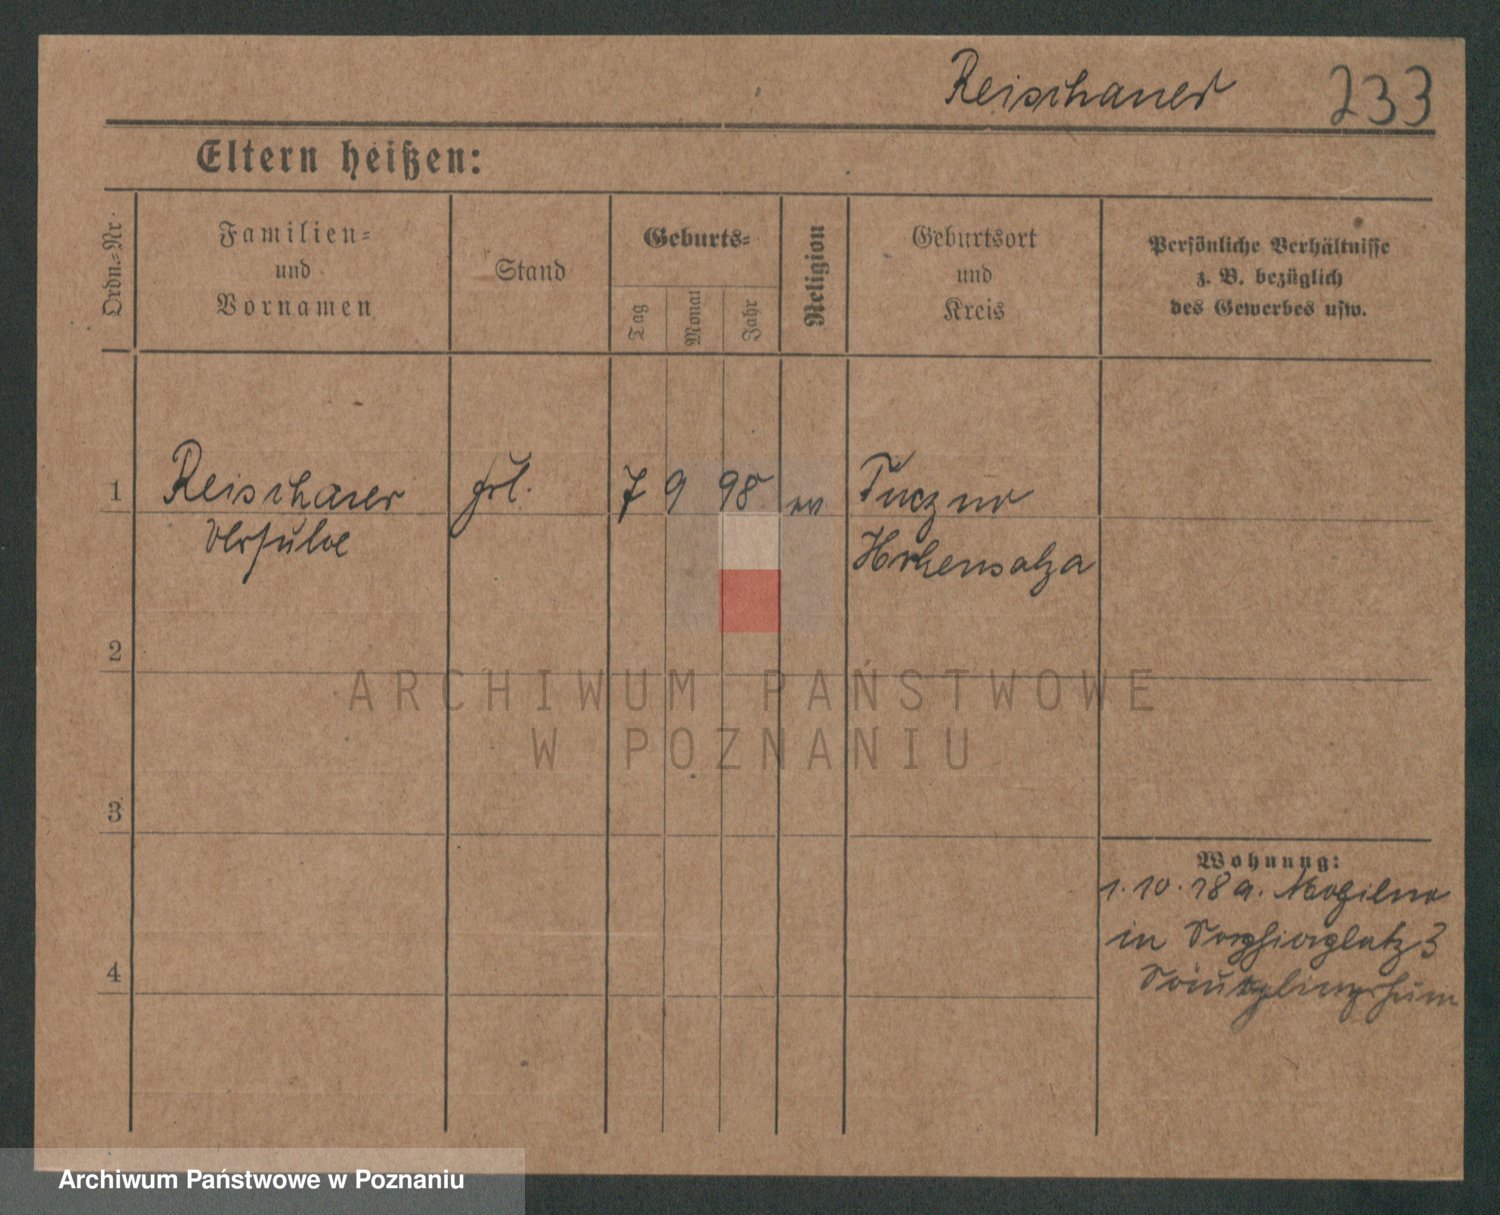 Reischauer 233
Eltern heißen:
Ordn.-Nr.
Familien-
und
Vornamen
Stand
Geburts-
Tag
Monat
Jahr
Religion
Geburtsort
und
Kreis
Persönliche Verhältnisse
z. B. bezüglich
des Gewerbes usw.
1 Reischauer frl. 7 9 98 ev Tuczno
Ursula Hohensalza
2
ARCHIWUM PAŃSTWOWE
W POZNANIU
3
Wohnung:
1.10.18 a. Mogilno
in Sapiehaplatz 3
4
Archiwum Państwowe w Poznaniu